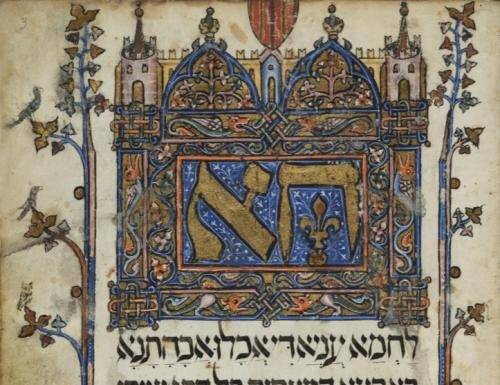 3
הא
לחמא עניא די אכלו אבהתנא